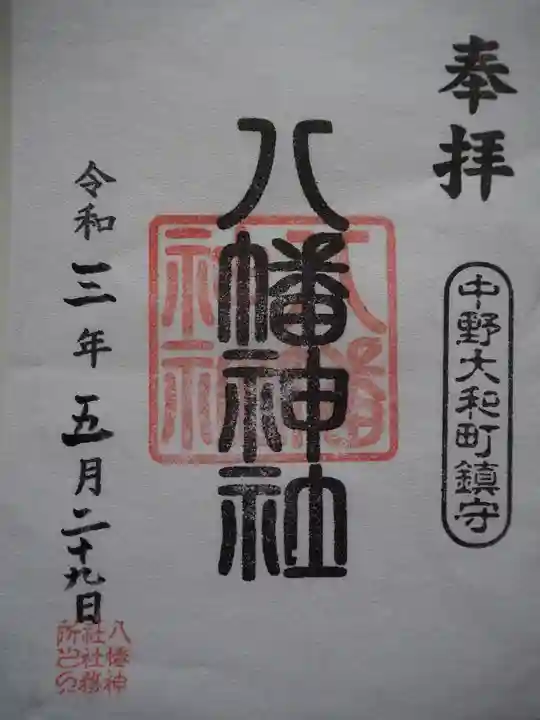 奉拝
中野大和町鎮守
八幡神社
八幡神社
令和三年五月二十九日
八幡神社社務所之印